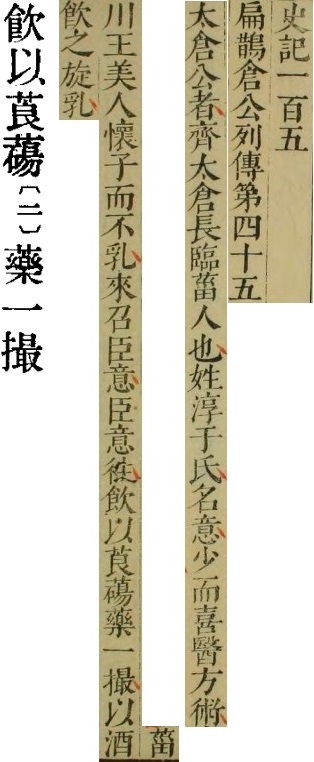 史記一百五
扁鵲倉公列傳第四十五
太倉公者齊太倉長臨菑人也姓淳于氏名意少而喜醫方術
菑
川王美人懷子而不乳來召臣意臣意徃飲以莨䓪藥一撮以酒
飲之旋乳
飲以莨䓪〔二〕藥一撮